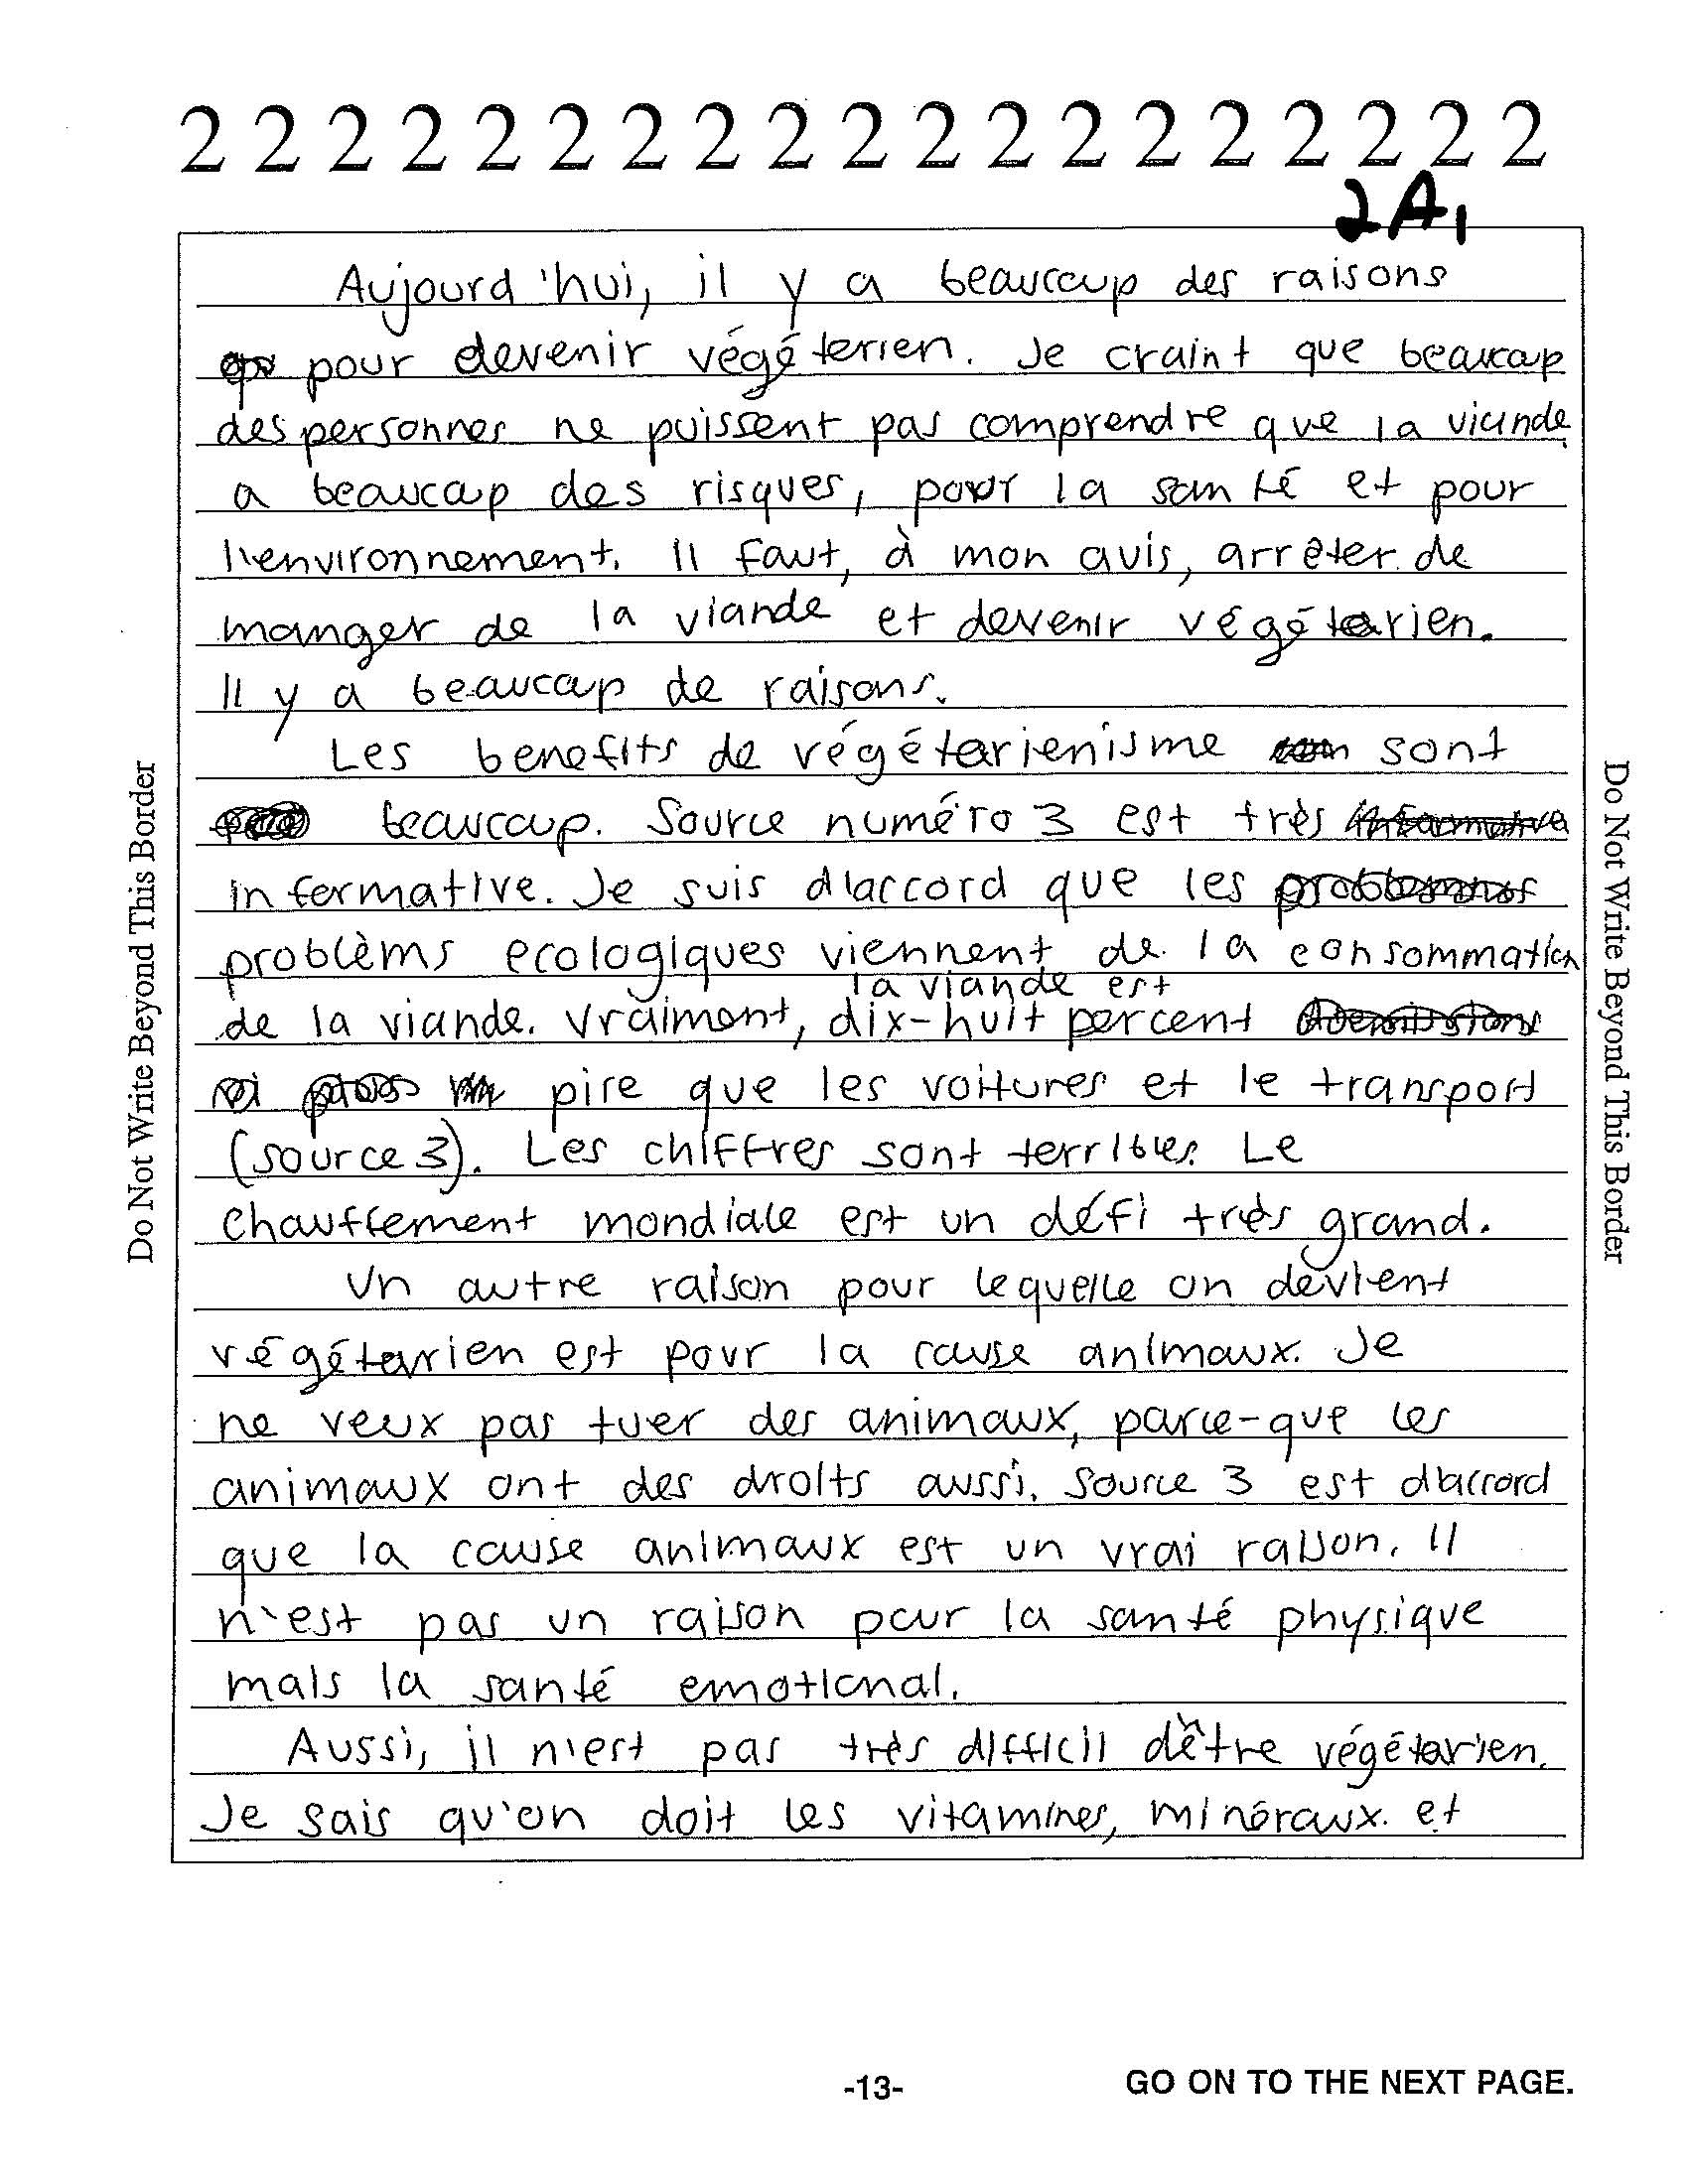 2 2 2 2 2 2 2 2 2 2 2 2 2 2 2 2 2 2 2
2A1
Aujourd'hui, il y a beaucoup des raisons
pour devenir végéterien. Je craint que beaucoup
des personnes ne puissent pas comprendre que la viande
a beaucoup des risques, pour la santé et pour
l'environnement. Il faut, à mon avis, arrêter de
manger de la viande et devenir végétarien.
Il y a beaucoup de raisons.
Les benefits de végétarienisme sont
beaucoup. Source numéro 3 est très
informative. Je suis d'accord que les
problèms ecologiques viennent de la consommation
la viande est
de la viande. Vraiment, dix-huit percent
pire que les voitures et le transport
(source 3). Les chiffres sont terribles. Le
chauffement mondiale est un défi très grand.
Un autre raison pour lequelle on devient
végétarien est pour la cause animaux. Je
ne veux pas tuer des animaux, parce-que les
animaux ont des droits aussi. Source 3 est d'accord
que la cause animaux est un vrai raison. Il
n'est pas un raison pour la santé physique
mais la santé emotional.
Aussi, il n'est pas très difficil d'être végétarien.
Je sais qu'on doit les vitamines, minéraux et
Do Not Write Beyond This Border
Do Not Write Beyond This Border
-13-
GO ON TO THE NEXT PAGE.